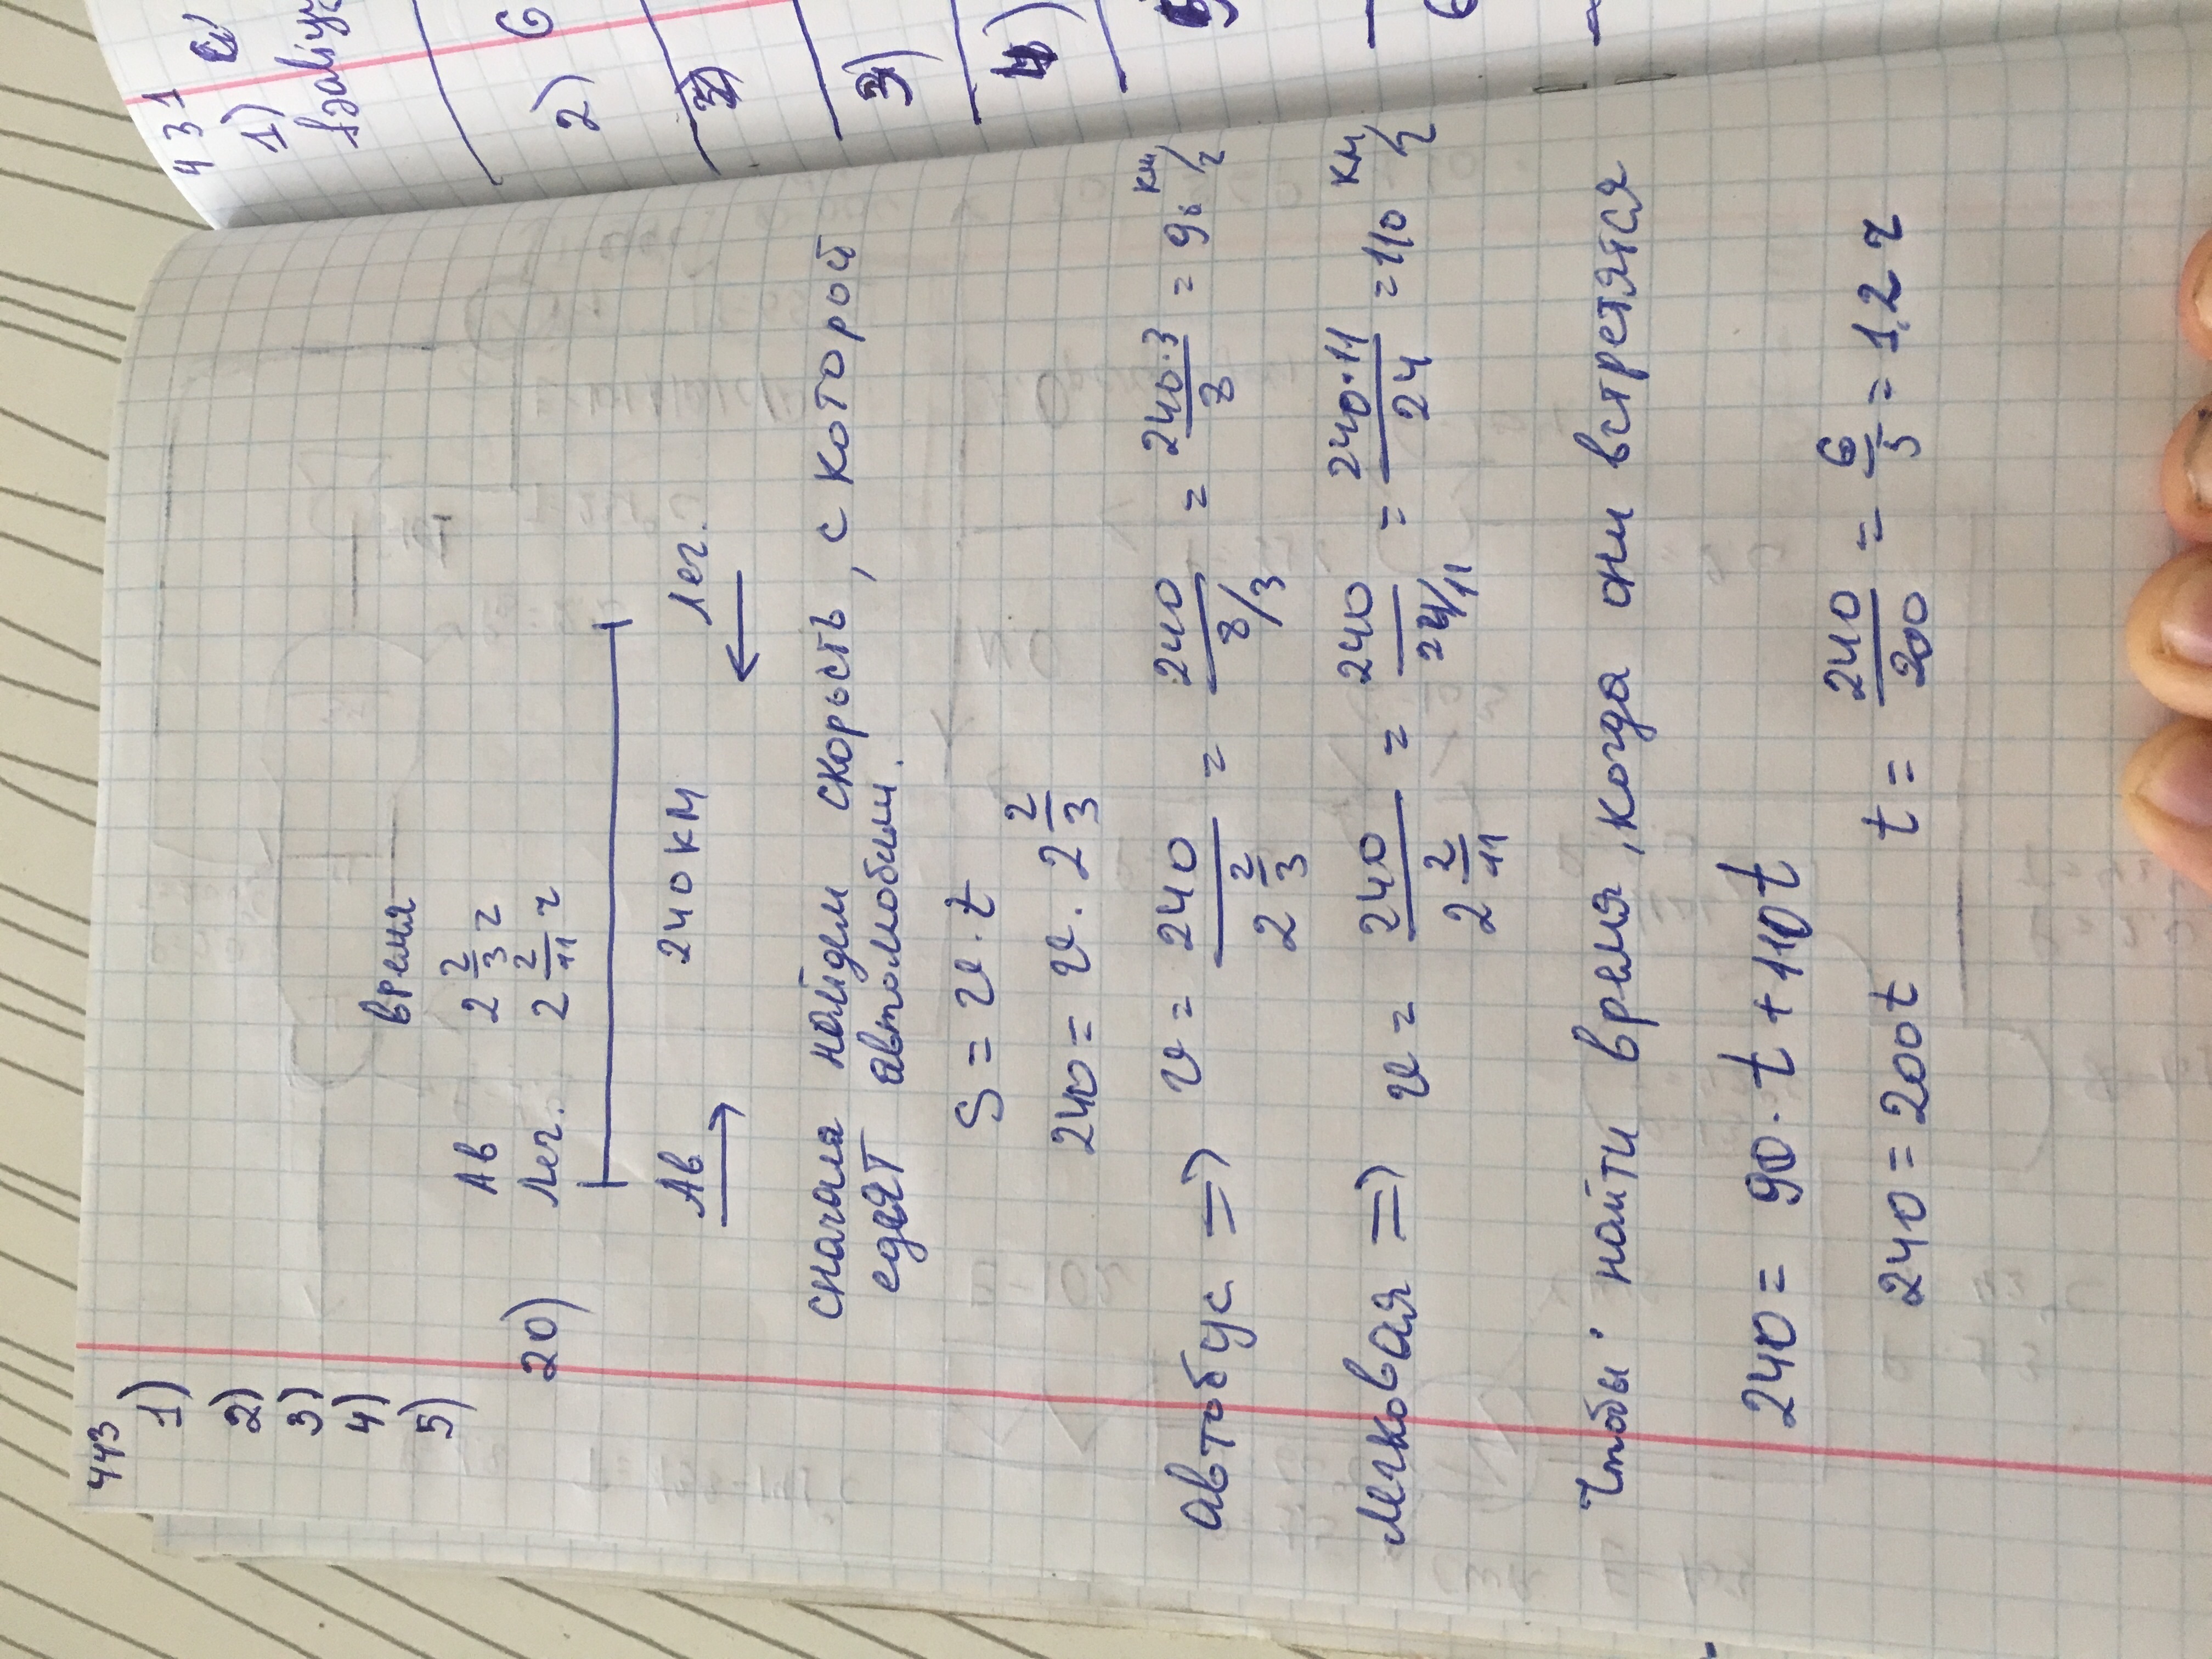 443
1)
2)
3)
4)
5)
время
Ав 2 2/3 ч
20) Лег. 2 2/11 ч
Ав 240 км Лег.
сначала найдем скорость, с которой
едят автомобили.
S = v · t
240 = v · 2 2/3
автобус => v = 240/(2 2/3) = 240/(8/3) = 240·3/8 = 90 км/ч
легковая => v = 240/(2 2/11) = 240/(24/11) = 240·11/24 = 110 км/ч
Чтобы найти время, когда они встретятся
240 = 90 · t + 110t
240 = 200t t = 240/200 = 6/5 = 1.2 ч
431
1)
2) 6
3)
4)